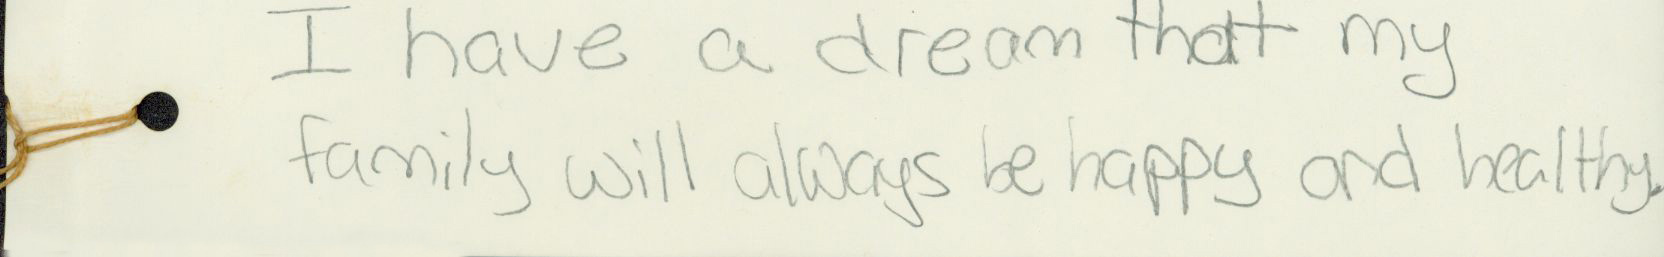 I have a dream that my
family will always be happy and healthy.